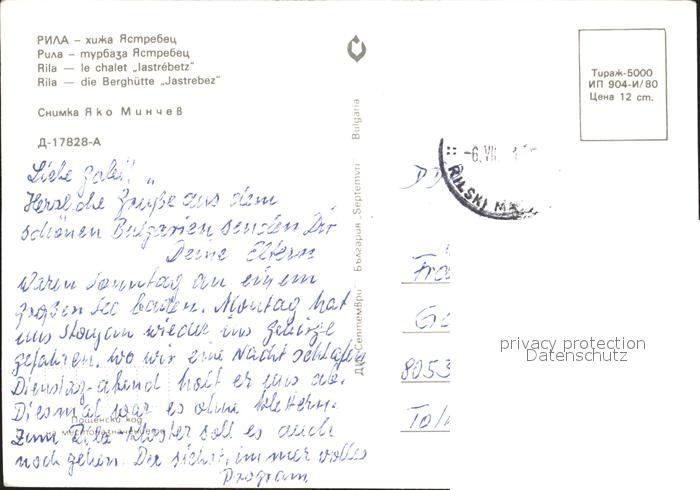 РИЛА – хижа Ястребец
Рила — турбаза Ястребец
Rila — le chalet „Iastrébetz"
Rila — die Berghütte „Jastrebez"
Снимка Яко Минчев
Д-17828-А
Тираж-5000
ИП 904-И/80
Цена 12 ст.
-6.VII.
RILSKI
ДИ „Септември" България „Septemvri" Bulgaria
Liebe
Herzliche Grüße aus dem
schönen Bulgarien senden Dir
Deine Eltern
Waren Sonntag an einem
großen See baden. Montag hat
uns Stojan wieder ins Gebirge
gefahren, wo wir eine Nacht schlafen
Dienstag-abend holt er uns ab.
Diesmal war es ohne klettern.
Zum Rila Kloster soll es auch
noch gehen. Du siehst, immer volles
Program
Пощенски код
на местоназначението
8053
privacy protection
Datenschutz